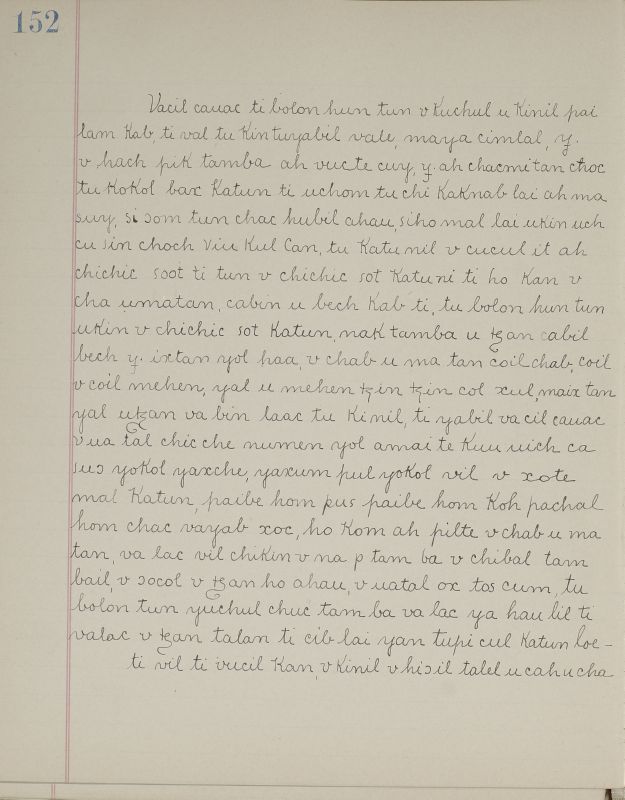 152
Vacil cauac ti bolon hun tun v kuchul u Kinil pai
lam Kab, ti val tu Kintuyabil vale, maya cimlal, y.
v hach pik tamba ah vucte cuy, y. ah chacmitan choc
tu Kokol bax Katun ti uchom tu chi Kaknab lai ah ma
suy, si ɔom tun chac hubil ahau, siho mal lai ukin uch
cu sin choch Viu Kul Can, tu Katunil v cucul it ah
chichic soot ti tun v chichic sot Katuni ti ho Kan v
cha umatan, cabin u bech Kab ti, tu bolon hun tun
ukin v chichic sot Katun, nak tamba u tzan cabil
bech y. ixtan yol haa, v chab u ma tan coil chab, coil
v coil mehen, yal u mehen tzin tzin col xul, maix tan
yal utzan va bin laac tu Kinil, ti yabil vacil cauac
v ua tal chic che numen yol amai te Kuu uich ca
suɔ yokol yaxche, yaxum pul yokol vil v xote
mal Katun, paibe hom pus paibe hom Koh pachal
hom chac vayab xoc, ho Kom ah pilte v chab u ma
tan, va lac vil chikin v na p tam ba v chibal tam
bail, v ɔocol v tzan ho ahau, v uatal ox tos cum, tu
bolon tun yuchul chuc tam ba va lac ya hau lil ti
valac v tzan talan ti cib lai yan tupi cul Katun loe-
ti vil ti vucil Kan, v Kinil v hiɔil talel u cah u cha